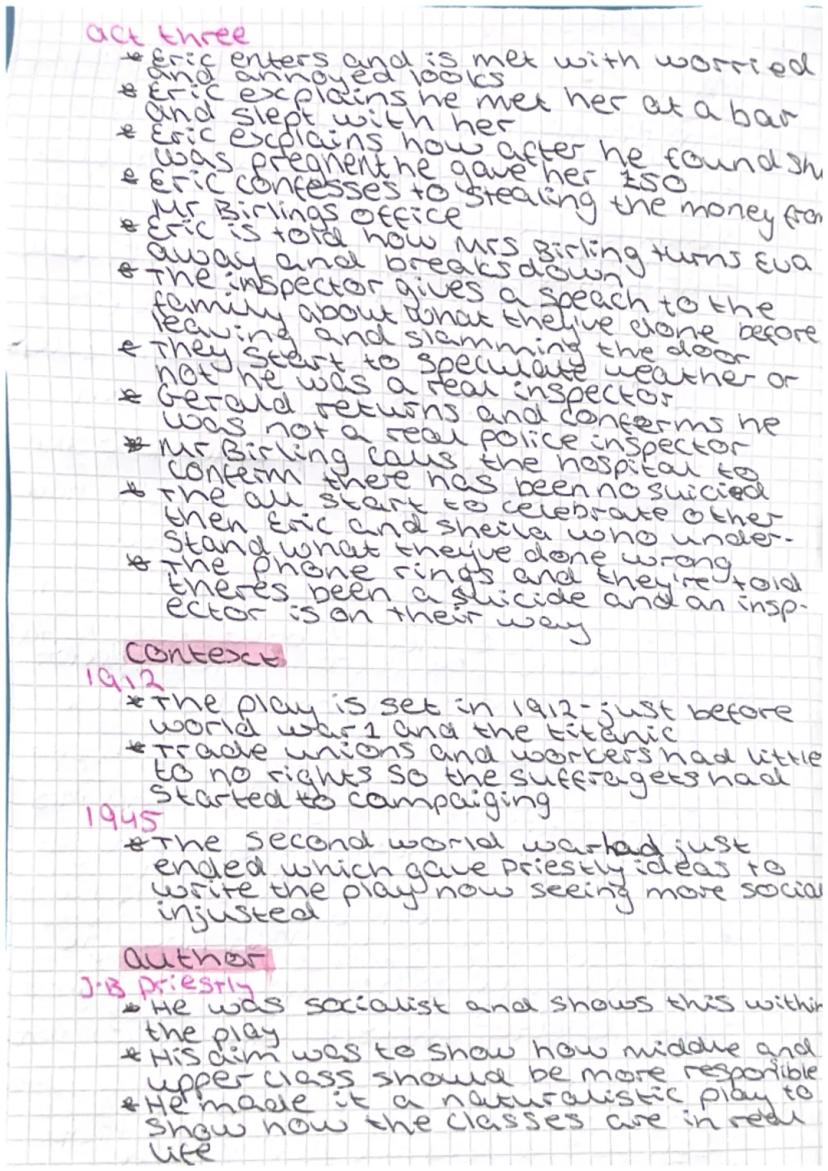 act three
* Eric enters and is met with worried
and annoyed looks
* Eric explains he met her at a bar
and slept with her
* Eric explains how after he found sh
was pregnent he gave her £50
* Eric confesses to stealing the money fro
Mr Birlings office
* Eric is told how Mrs Birling turns Eva
away and breaks down
* The inspector gives a speach to the
family about what theyive done before
leaving and slamming the door
* They start to speculate weather or
not he was a real inspector
* Gerald returns and conferms he
was not a real police inspector
* Mr Birling calls the hospital to
conferm there has been no suicied
* The all start to celebrate other
then Eric and sheila who under-
stand what theyive done wrong
* The phone rings and they're told
theres been a suicide and an insp-
ector is on their way
context
1912
* The play is set in 1912- just before
world war 1 and the titanic
* Trade unions and workers had little
to no rights so the suffragets had
started to campaiging
1945
* The second world war had just
ended which gave priestly ideas to
write the play now seeing more social
injusted
author
J.B priestly
* He was socialist and shows this within
the play
* His aim was to show how middle and
upper class should be more responible
* He made it a naturalistic play to
show how the classes are in real
life